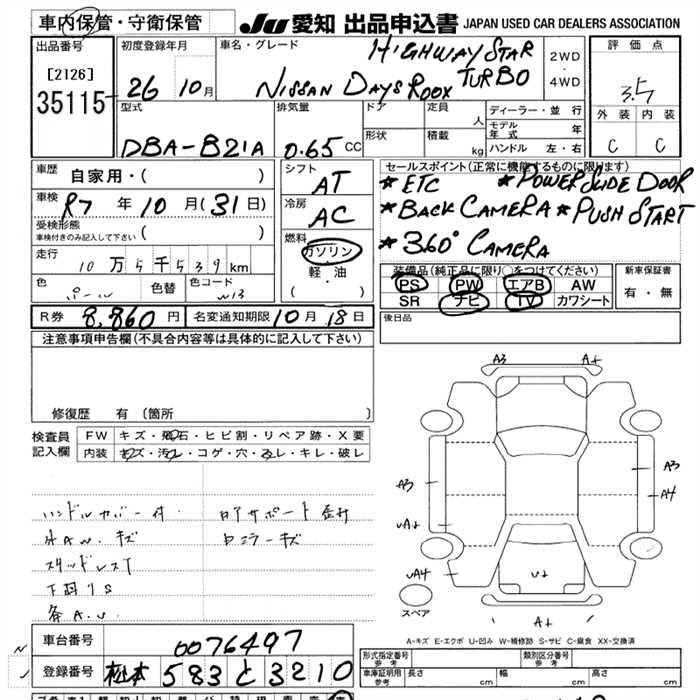 車内保管・守衛保管
JU 愛知 出品申込書 JAPAN USED CAR DEALERS ASSOCIATION
出品番号
[2126]
35115
初度登録年月
26 10月
車名・グレード
HIGHWAY STAR
NISSAN DAYS ROOX TURBO
2WD
4WD
評価点
3.5
外装 内装
C C
型式
DBA-B21A
排気量
0.65 CC
ドア
形状
定員
人
積載
kg
ディーラー・並行
モデル年式 年
ハンドル 左・右
車歴
自家用・( )
車検
R7 年 10 月 (31日)
受検形態
車検付きのみ記入して下さい ( )
走行
10万5千539km
色
パール
色替
色コード
W13
シフト
AT
冷房
AC
燃料
ガソリン
・
軽・油
( )
セールスポイント(正常に機能するものに限ります)
★ETC ★POWER SLIDE DOOR
★BACK CAMERA ★PUSH START
★360° CAMERA
装備品(純正品に限り○をつけてください)
PS PW エアB AW
SR ナビ TV カワシート
新車保証書
有・無
R券 8,860 円
名変通知期限 10月18日
後日品
注意事項申告欄(不具合内容等は具体的に記入して下さい)
修復歴 有 [箇所 ]
検査員記入欄
FW キズ・飛石・ヒビ割・リペア跡・X要
内装 キズ・汚レ・コゲ・穴・スレ・キレ・破レ
ハンドルカバー付
キズ
スタッドレス
下廻りS
A3 A+
A3 A3
A4
A+
スペア
A-キズ E-エクボ U-凹み W-補修跡 S-サビ C-腐食 XX-交換済
車台番号
0076497
登録番号
松本 583 と 3210
形式指定番号
参考
類別区分番号
参考
車庫証明用
参考
長さ
cm
幅
cm
高さ
cm